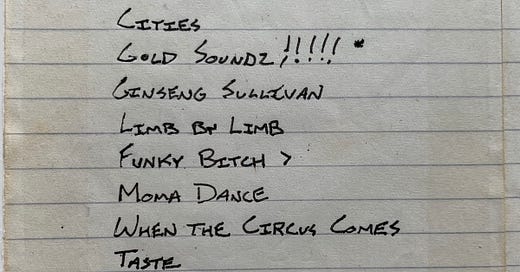 Cities
Gold Soundz!!!!! *
Ginseng Sullivan
Limb By Limb
Funky Bitch >
Moma Dance
When the Circus Comes
Taste